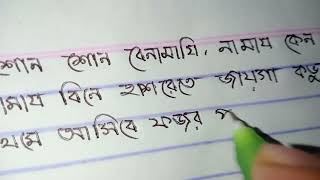 শোন শোন বেনামাযি, নামায কেন
নামায বিনে হাশরেতে জায়গা কভু
আসিবে ফজর